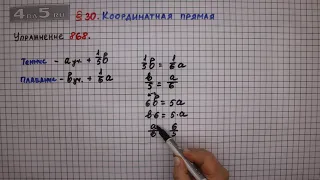 4 5.ru
§30. Координатная прямая
Упражнение 868.
Теннис - a уч. + 1/5 b
Плавание - b уч. + 1/6 a
1/5 b = 1/6 a
b/5 = a/6
6b = 5a
b6 = 5·a
a/b 6/5